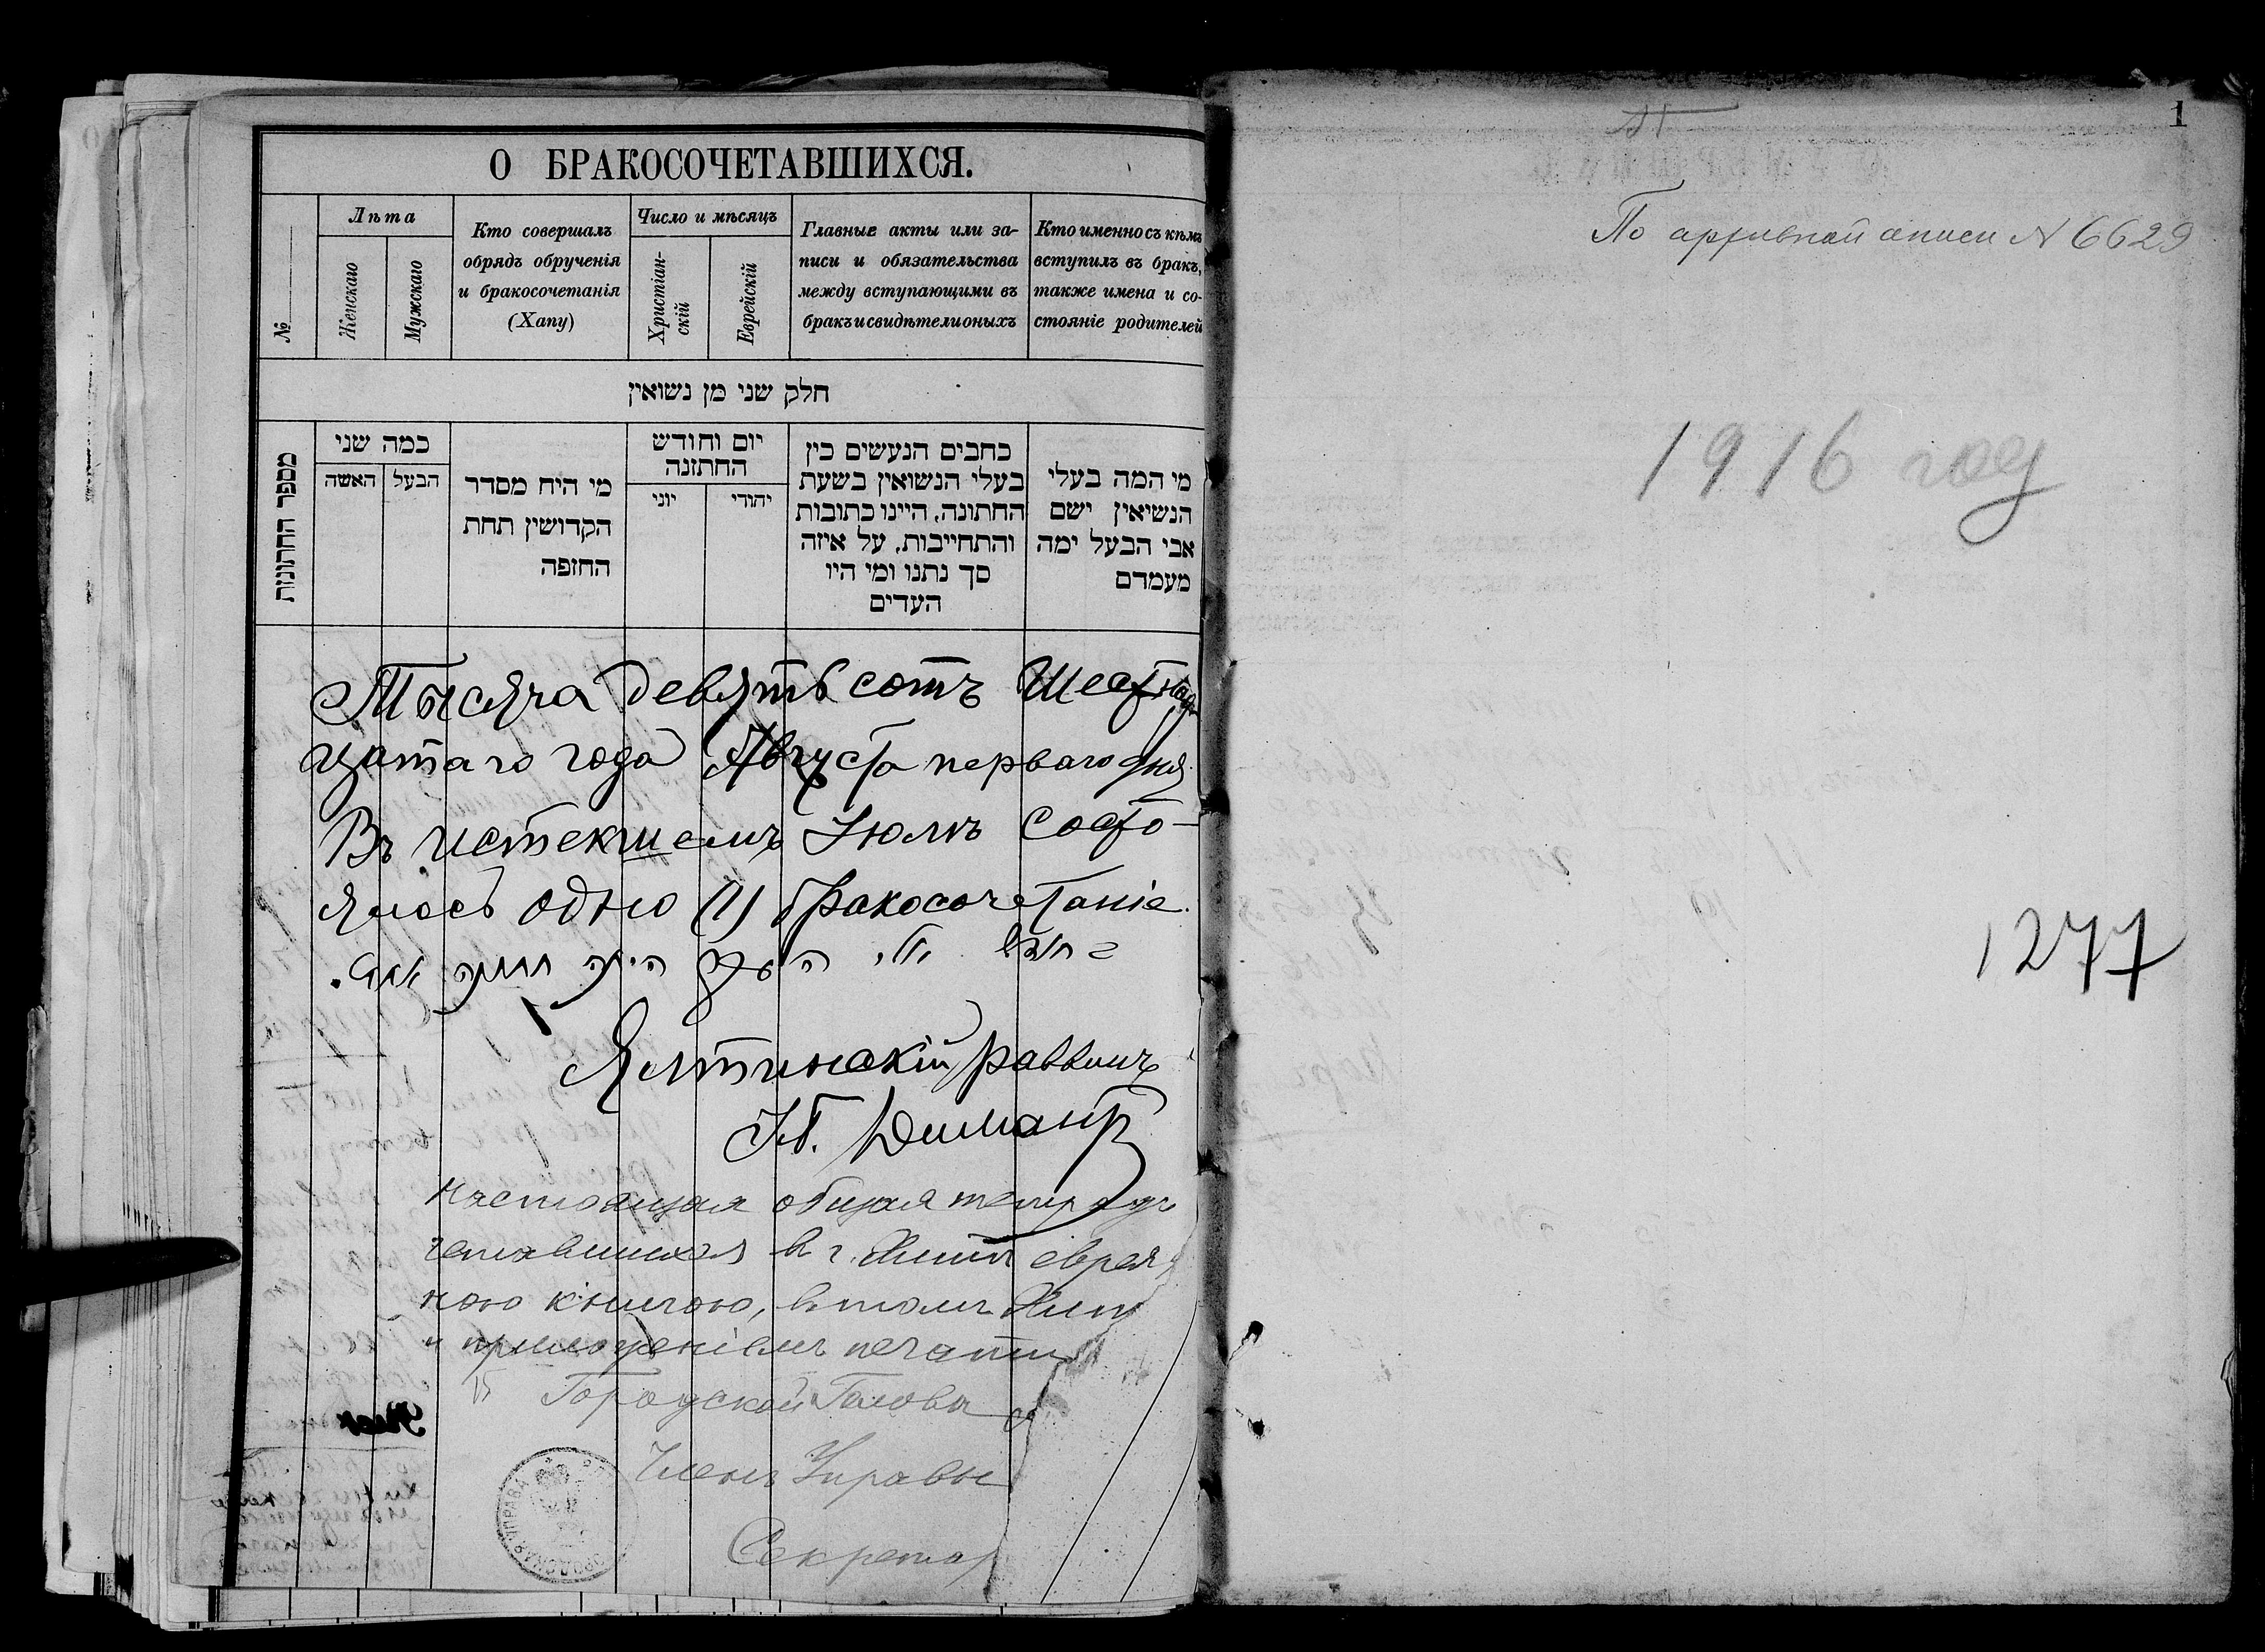 О БРАКОСОЧЕТАВШИХСЯ.
№
Лѣта
Женскаго
Мужскаго
Кто совершалъ
обрядъ обрученія
и бракосочетанія
(Хапу)
Число и мѣсяцъ
Христіан-
скій
Еврейскій
Главные акты или за-
писи и обязательства
между вступающими въ
бракъ и свидѣтели оныхъ
Кто именно съ кѣмъ
вступилъ въ бракъ,
также имена и со-
стояніе родителей
חלק שני מן נשואין
מספר החתונות
כמה שני
האשה
הבעל
מי היח מסדר
הקדושין תחת
החזפה
יום וחודש
החתזנה
יוני
יהודי
כחבים הנעשים כין
בעלי הנשואין בשעת
החתונה, היינו כתובות
והתחייבות, על איזה
סך נתנו ומי היו
העדים
מי המה בעלי
הנשיאין ישם
אבי הבעל ימה
מעמדם
Тысяча девятьсотъ Шестнад-
цатаго года Августа перваго дня
Въ истекшемъ Іюлѣ состо-
ялось одно (1) бракосочетаніе.
Ялтинскій раввинъ
Димантъ
настоящая общая тетрадь
четавшихся в г. Ялтѣ евреев
ною книгою, в томъ Ялт
и приложеніемъ печати
Городской Голова
Членъ Управы
Секретар
УПРАВА
1
По архивной описи № 6629
1916 год
1277